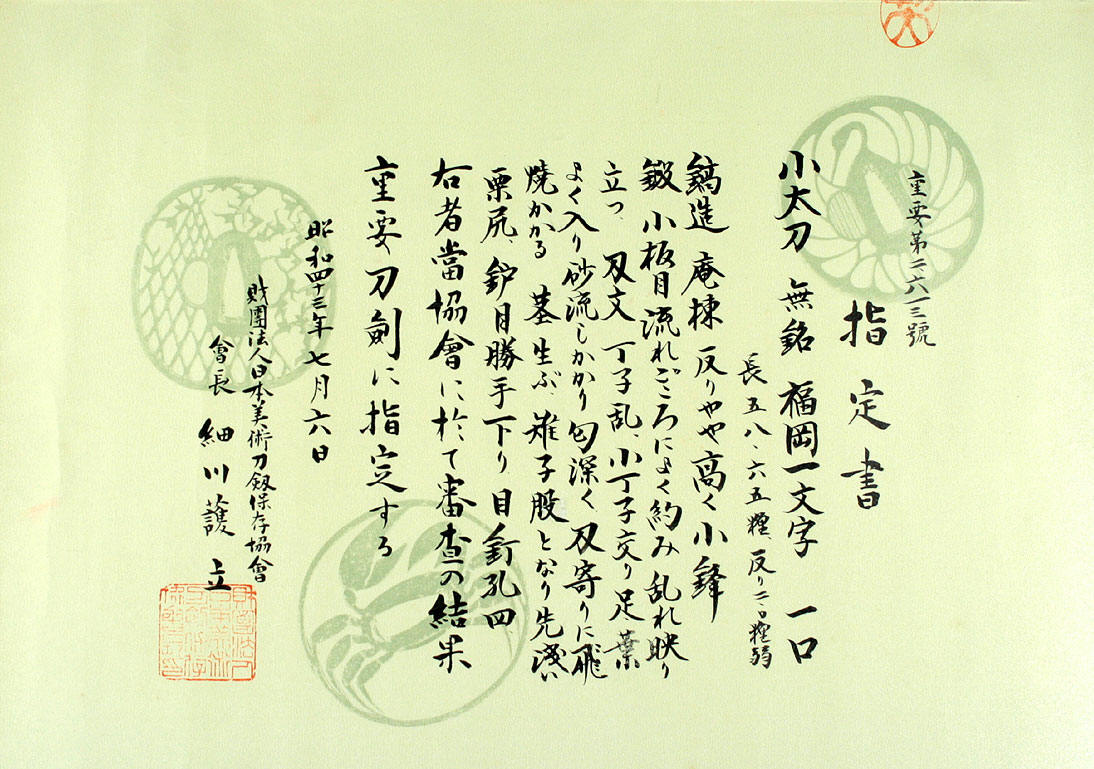 重要第二、六一三號
指定書
小太刀 無銘 福岡一文字 一口
長五八、六五糎、反り二、〇糎弱
鎬造 庵棟 反りやや高く小鋒
鍛 小板目流れごころによく約み乱れ映り
立つ、刄文 丁子乱、小丁子交り足、葉
よく入り砂流しかかり匂深く刄寄りに飛
焼かかる 茎生ぶ、雉子股となり先淺い
栗尻、鈩目勝手下り 目釘孔四
右者當協會に於て審査の結果
重要刀劍に指定する
昭和四十三年七月六日
財團法人日本美術刀劔保存協會
會長 細川護立